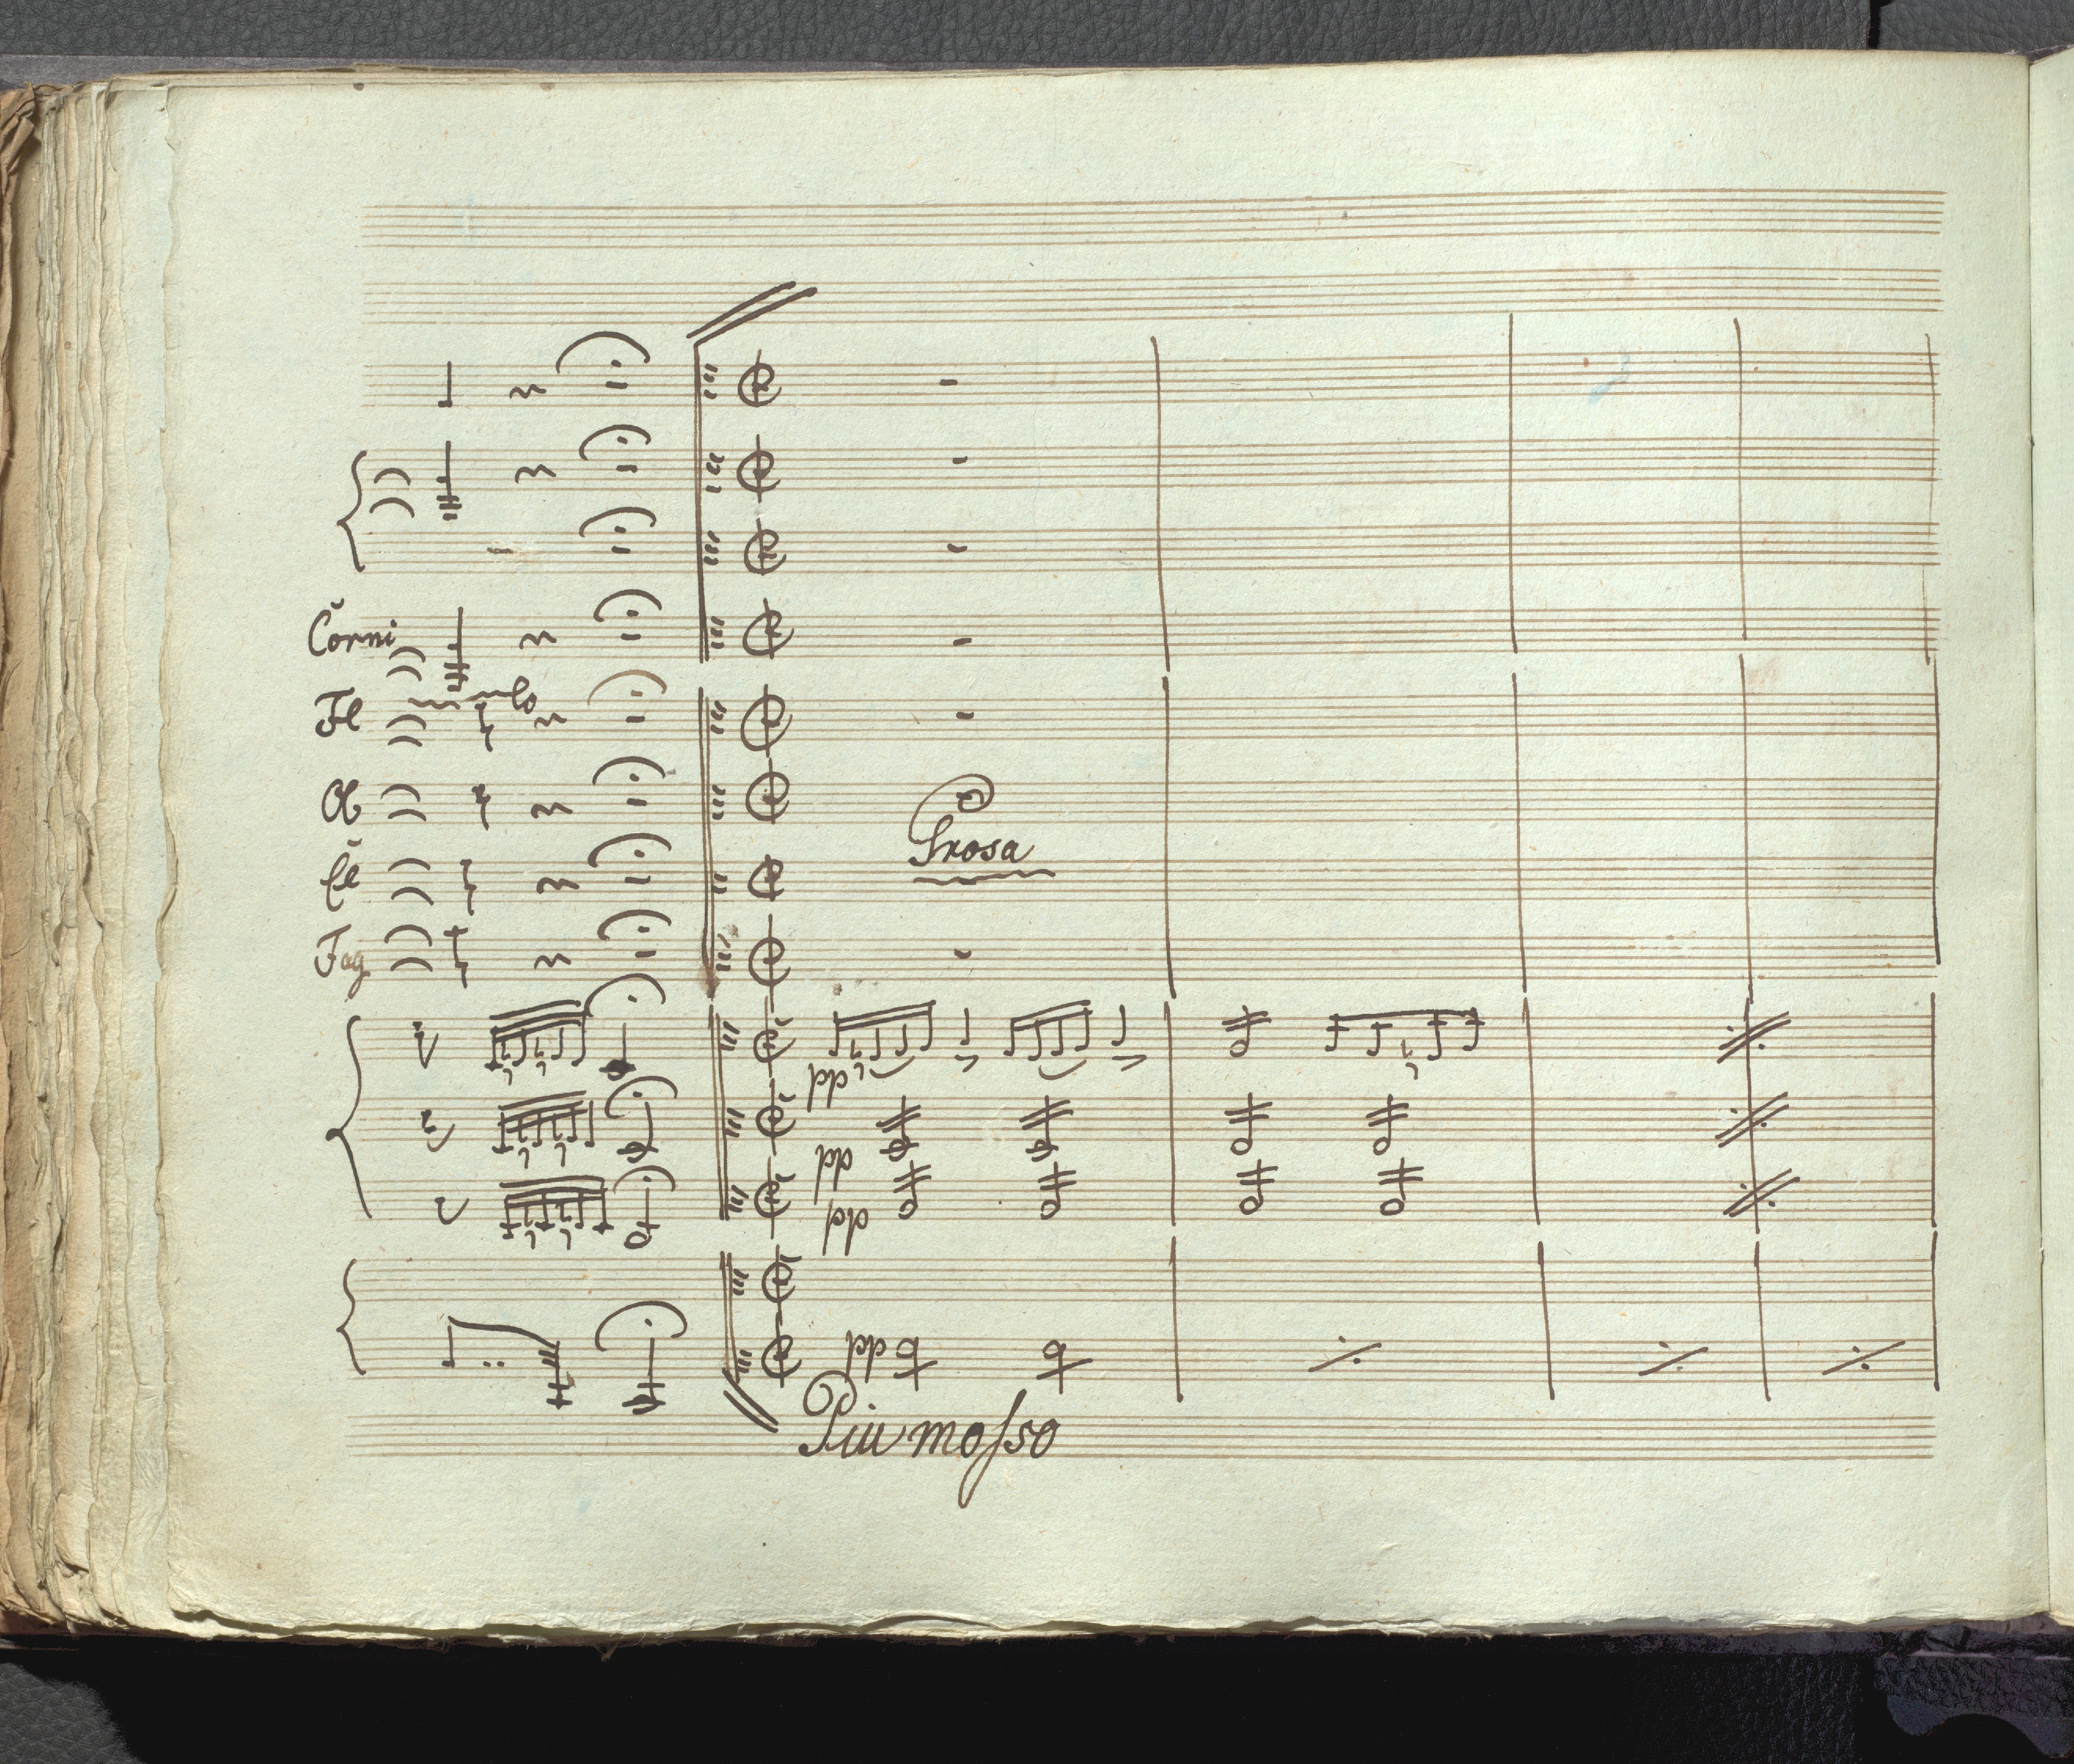 Corni
Fl
Ob
Cl
Prosa
Fag
pp
pp
pp
pp
Piu mosso